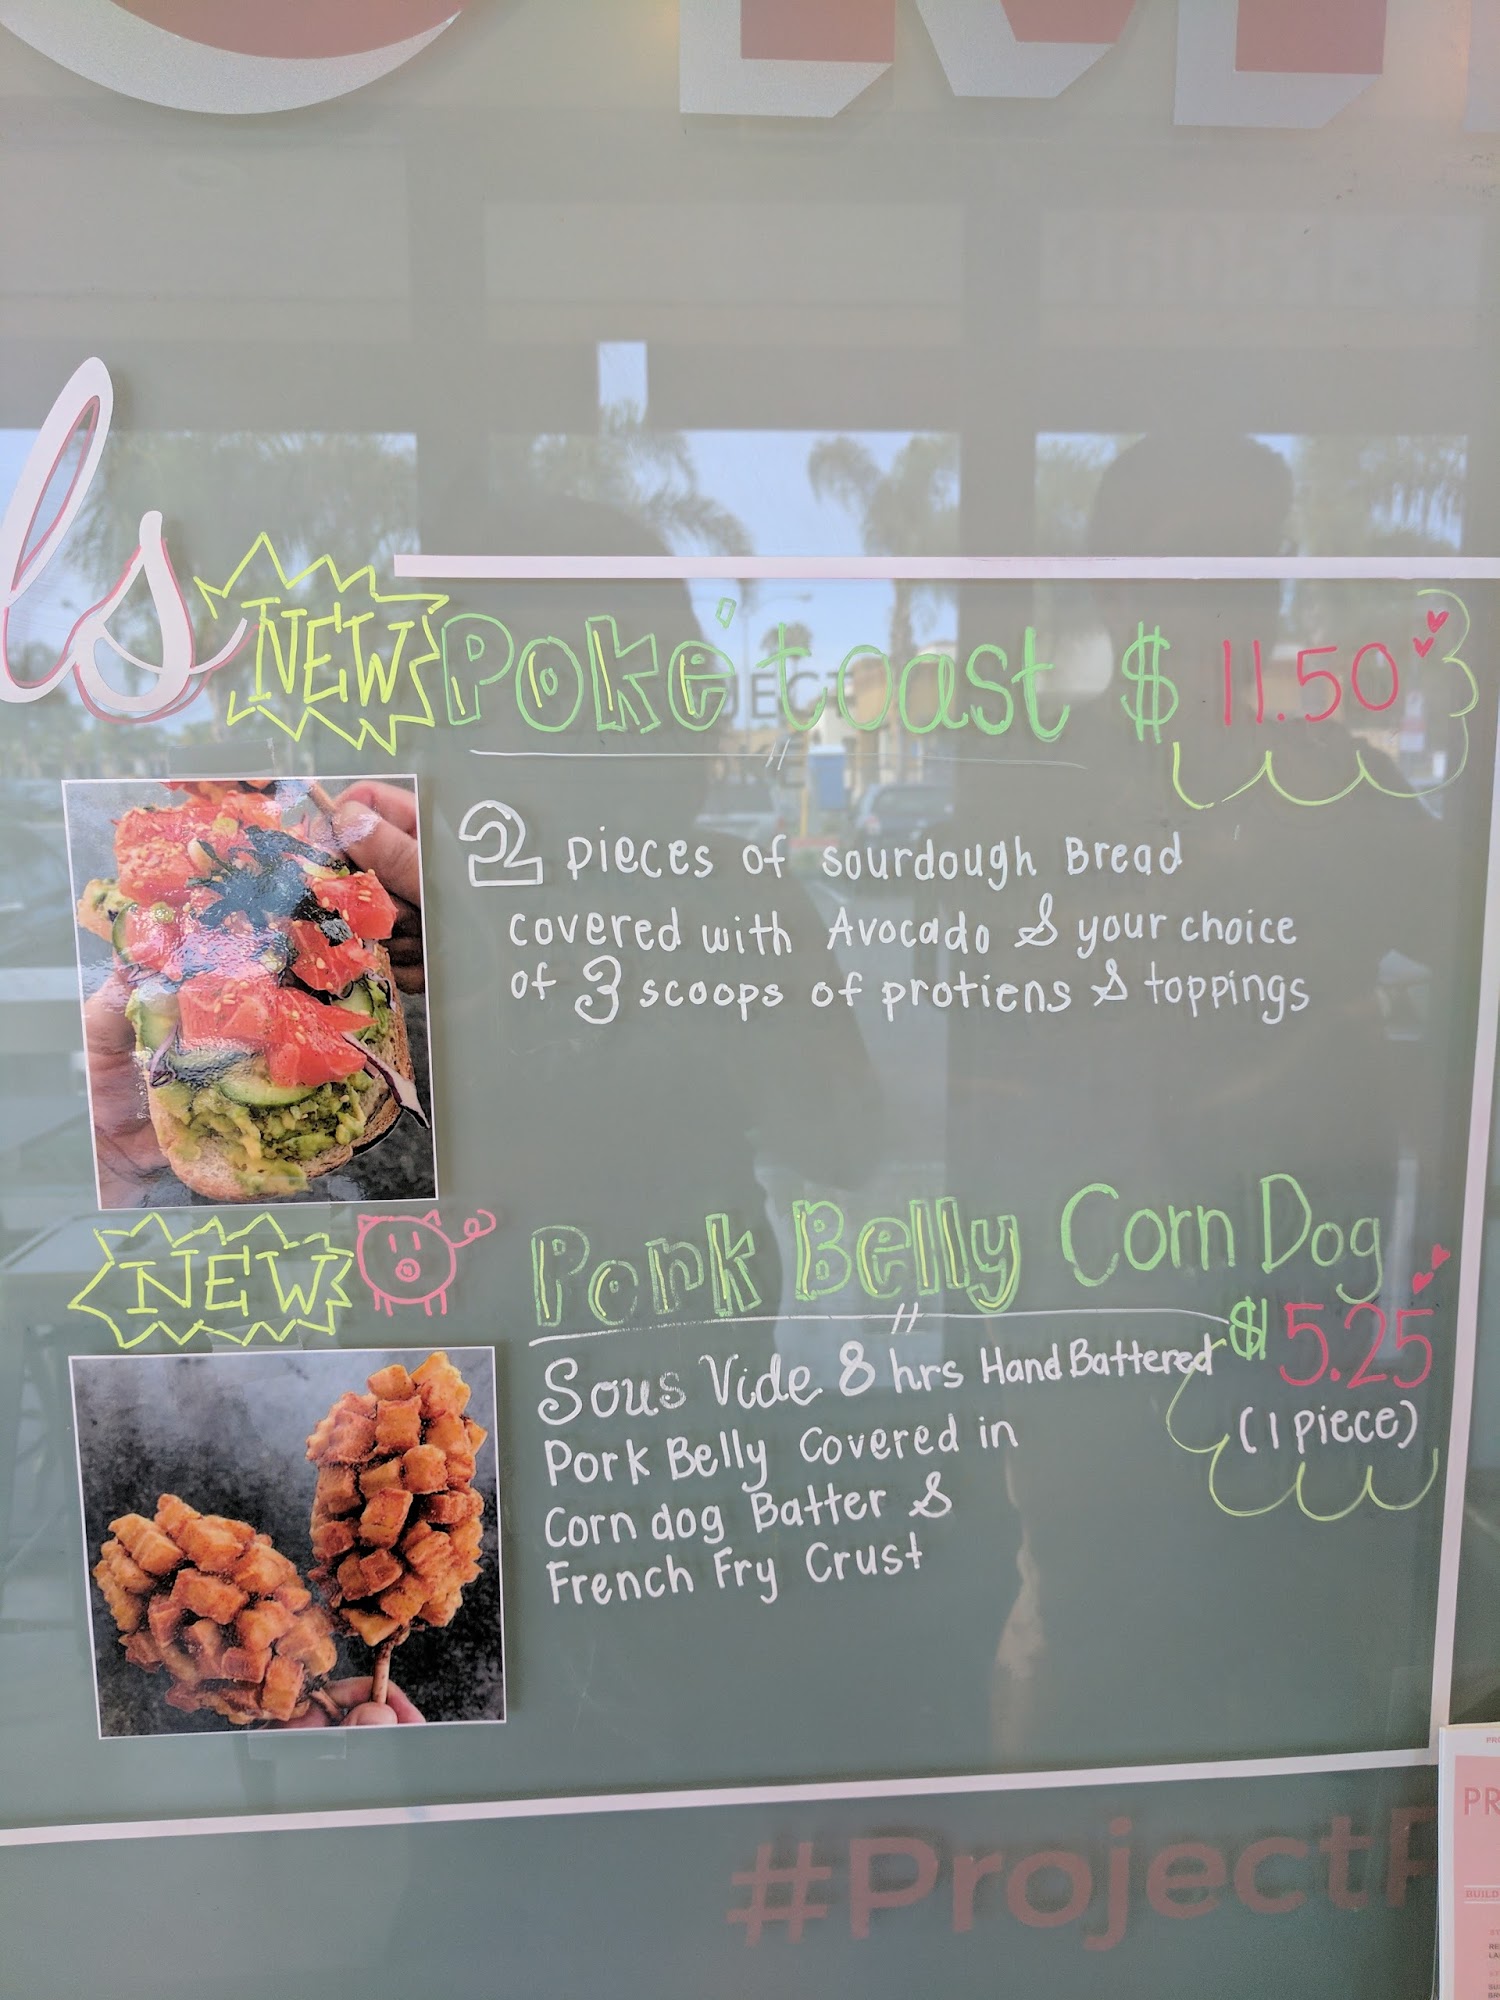 ls
NEW Poke' toast $ 11.50
2 pieces of sourdough Bread
covered with Avocado & your choice
of 3 scoops of protiens & toppings
NEW Pork Belly Corn Dog
$ 5.25
(1 piece)
Sous Vide 8 hrs Hand Battered
Pork Belly Covered in
Corn dog Batter &
French Fry Crust
#ProjectP
PR
BUILD